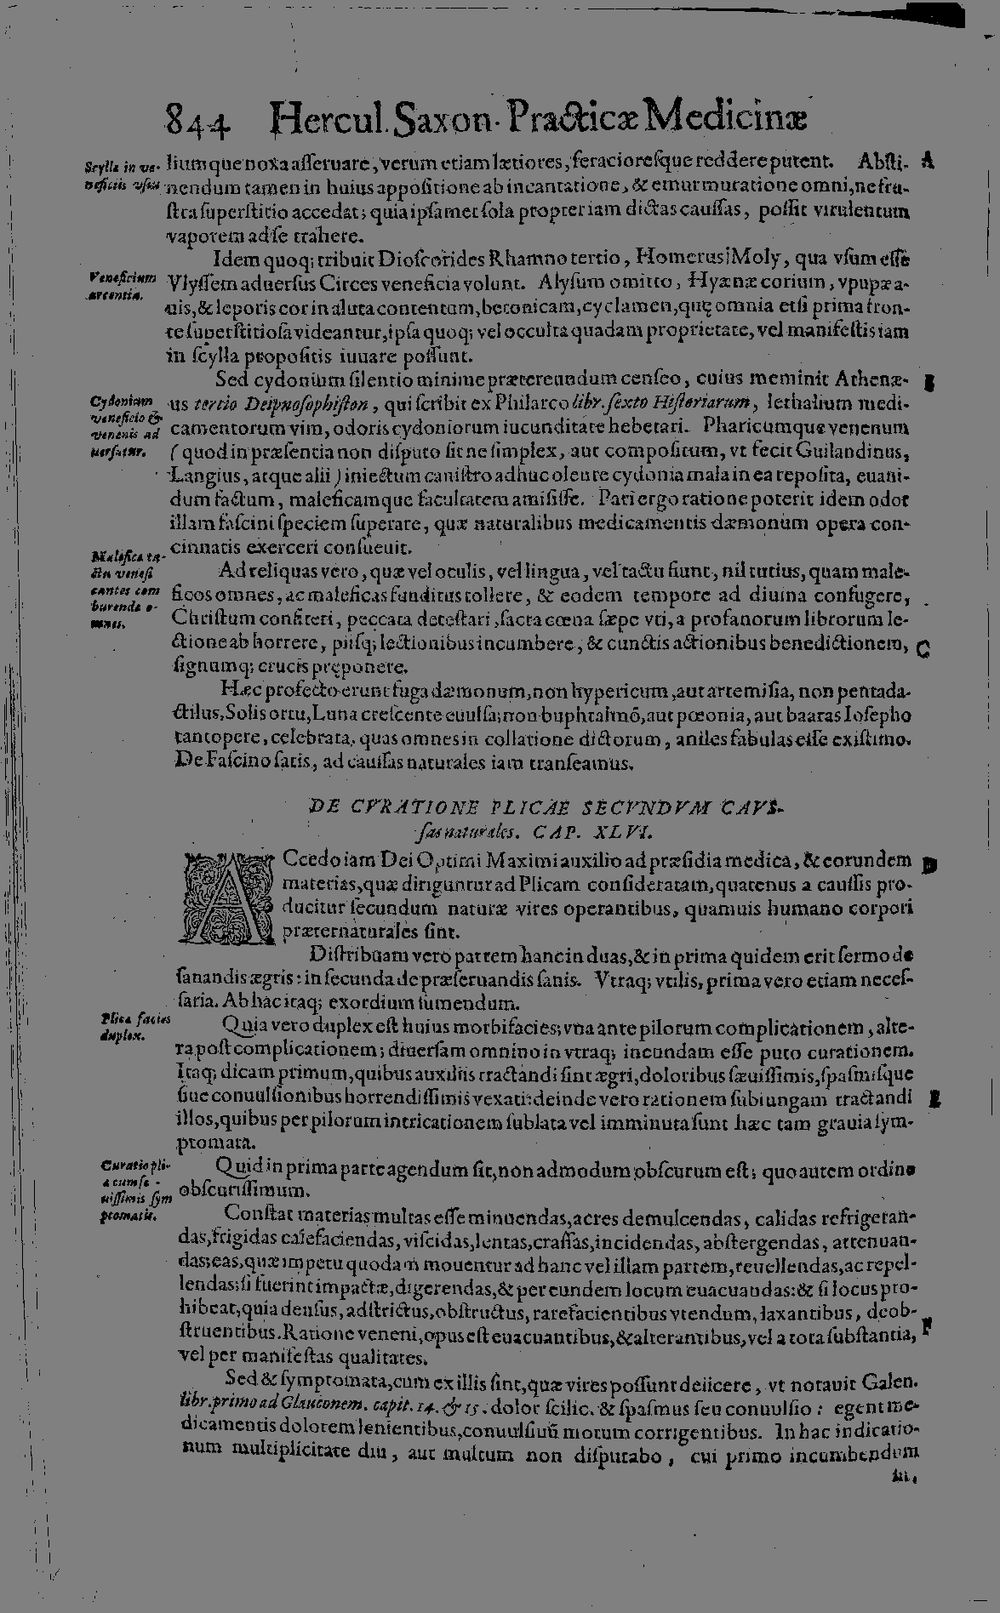 844 Hercul. Saxon. Practicæ Medicinæ
Scylla in ve-
neficiis vsus
liumque noxa aſſeruare, verum etiam lætiores, feracioreſque reddere putent. Abſti- A
nendum tamen in huius appoſitione ab incantatione, & emurmuratione omni, ne fru-
ſtra ſuperſtitio accedat; quia ipſamet ſola propter iam dictas cauſſas, poſſit virulentum
vaporem ad ſe trahere.
Idem quoq; tribuit Dioſcorides Rhamno tertio, Homerus Moly, qua vſum eſſe
Veneficium
arcentia.
Vlyſſem aduerſus Circes veneficia volunt. Alyſum omitto, Hyænæ corium, vpupæ a-
uis, & leporis cor in aluta contentum, betonicam, cyclamen, quę omnia etſi prima fron-
te ſuperſtitioſa videantur, ipſa quoq; vel occulta quadam proprietate, vel manifeſtis iam
in ſcylla propoſitis iuuare poſſunt.
Sed cydonium ſilentio minime prætereundum cenſeo, cuius meminit Athenæ- B
Cydonium
veneficio &
venenis ad
uerſatur.
us tertio Deipnoſophiſton, qui ſcribit ex Philarco libr. ſexto Hiſtoriarum, lethalium medi-
camentorum vim, odoris cydoniorum iucunditate hebetari. Pharicumque venenum
(quod in præſentia non diſputo ſit ne ſimplex, aut compoſitum, vt fecit Guilandinus,
Langius, atque alii) iniectum caniſtro adhuc olente cydonia mala in ea repoſita, euani-
dum factum, maleficamque facultatem amiſiſſe. Pari ergo ratione poterit idem odor
illam faſcini ſpeciem ſuperare, quæ naturalibus medicamentis dæmonum opera con-
cinnatis exerceri conſueuit.
Malefica ta-
ctu venefi
cantes com
burenda o-
mnes.
Ad reliquas vero, quæ vel oculis, vel lingua, vel tactu fiunt, nil tutius, quam male-
ficos omnes, ac maleficas funditus tollere, & eodem tempore ad diuina confugere,
Chriſtum confiteri, peccata deteſtari, ſacra cœna ſæpe vti, a profanorum librorum le-
ctione abhorrere, piiſq; lectionibus incumbere, & cunctis actionibus benedictionem, C
ſignumq; crucis pręponere.
Hæc profecto erunt fuga dæmonum, non hypericum, aut artemiſia, non pentada-
ctilus, Solis ortu, Luna creſcente euulſa; non buphtalmõ, aut pœonia, aut baaras Ioſepho
tantopere, celebrata, quas omnes in collatione dictorum, aniles fabulas eſſe exiſtimo.
De Faſcino ſatis, ad cauſſas naturales iam tranſeamus.
DE CVRATIONE PLICAE SECVNDVM CAVS-
ſas naturales. CAP. XLVI.
ACcedo iam Dei Optimi Maximi auxilio ad præſidia medica, & eorundem D
materias, quæ diriguntur ad Plicam conſideratam, quatenus a cauſſis pro-
ducitur ſecundum naturæ vires operantibus, quamuis humano corpori
præternaturales ſint.
Diſtribuam vero partem hanc in duas, & in prima quidem erit ſermo de
ſanandis ægris: in ſecunda de præſeruandis ſanis. Vtraq; vtilis, prima vero etiam neceſ-
ſaria. Ab hac itaq; exordium ſumendum.
Plica facies
duplex.
Quia vero duplex eſt huius morbi facies; vna ante pilorum complicationem, alte-
ra poſt complicationem; diuerſam omnino in vtraq; ineundam eſſe puto curationem.
Itaq; dicam primum, quibus auxiliis tractandi ſint ægri, doloribus ſæuiſſimis, ſpaſmiſque
ſiue conuulſionibus horrendiſſimis vexati: deinde vero rationem ſubiungam tractandi E
illos, quibus per pilorum intricationem ſublata vel imminuta ſunt hæc tam grauia ſym-
ptomata.
Curatio pli-
cæ cum ſæ-
uiſſimis ſym
ptomatis.
Quid in prima parte agendum ſit, non admodum obſcurum eſt; quo autem ordine
obſcuriſſimum.
Conſtat materias multas eſſe minuendas, acres demulcendas, calidas refrigeran-
das, frigidas calefaciendas, viſcidas, lentas, craſſas, incidendas, abſtergendas, attenuan-
das; eas, quæ impetu quodam mouentur ad hanc vel illam partem, reuellendas, ac repel-
lendas: ſi fuerint impactæ, digerendas, & per eundem locum euacuandas: & ſi locus pro-
hibeat, quia denſus, adſtrictus, obſtructus, rarefacientibus vtendum, laxantibus, deob-
ſtruentibus. Ratione veneni, opus eſt euacuantibus, & alterantibus, vel a tota ſubſtantia, F
vel per manifeſtas qualitates.
Sed & ſymptomata, cum ex illis ſint, quæ vires poſſunt deiicere, vt notauit Galen.
libr. primo ad Glauconem. capit. 14. & 15. dolor ſcilic. & ſpaſmus ſeu conuulſio: egent me-
dicamentis dolorem lenientibus, conuulſiuũ motum corrigentibus. In hac indicatio-
num multiplicitate diu, aut multum non diſputabo, cui primo incumbendum
ſit,